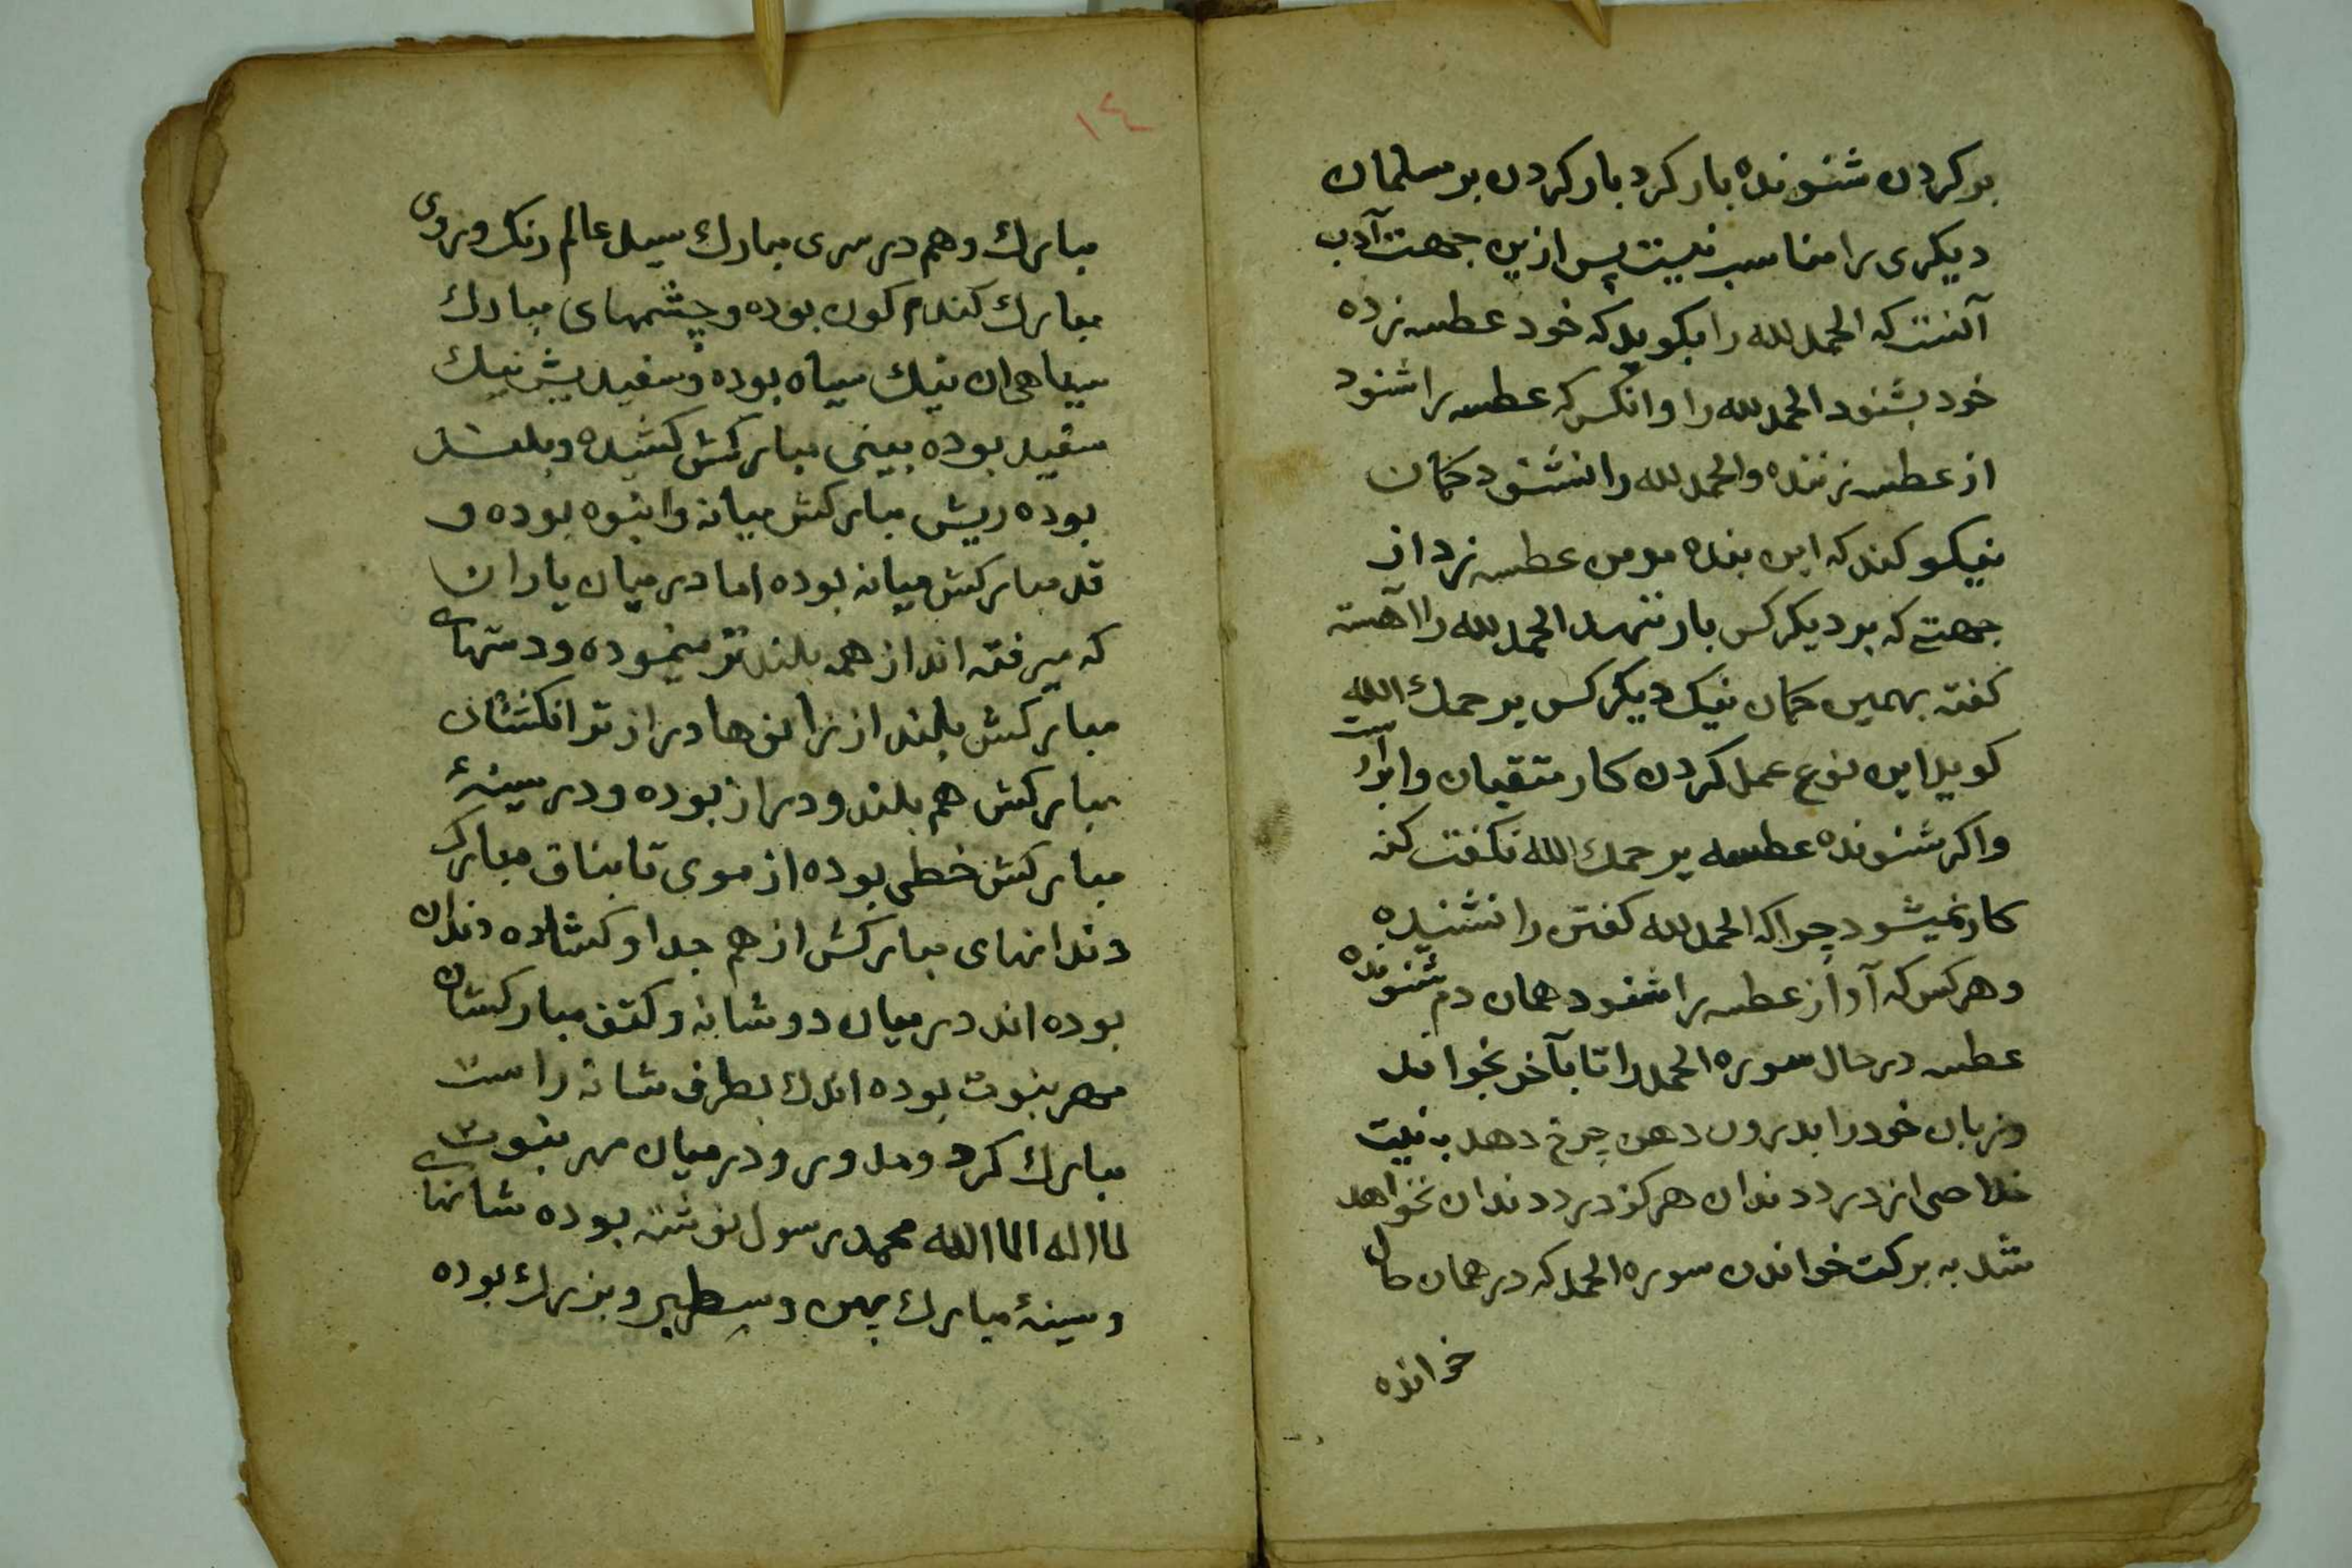 بر کردن شنونده بار کرد بار کردن بر مسلمان
دیکری را مناسب نیست پس ازین جهت آدب
آنست که الحمد لله را بکوید که خود عطسه زده
خود بشنود الحمد لله را و انکس که عطسه را شنود
از عطسه زننده و الحمد لله را نشنود کمان
نیکو کند که این بنده مومن عطسه زد از
جهتے که بر دیکر کس بار ننهد الحمد لله را آهسته
کفته بهمین کمان نیک دیکر کس یرحمك الله
کوید این نوع عمل کردن کار متقیان و ابرار است
و اکر شنونده عطسه یرحمك الله نکفت کنه
کار نمیشود چرا که الحمد لله کفتن را نشنیده
و هر کس که آواز عطسه را شنود همان دم شنونده
عطسه در حال سوره الحمد را تا بآخر بخواند
و زبان خود را بدرون دهن چرخ دهد به نیت
خلاصی از درد دندان هرکز درد دندان نخواهد
شد به برکت خواندن سوره الحمد که در همان حال
خوانده
١٤
مبارك و هم در سری مبارك سید عالم رنک و روی
مبارك کندم کون بوده و چشمهای مبارك
سیاهی ان نیك سیاه بوده و سفیدیش نیك
سفید بوده بینی مبارکش کشیده و بلند
بوده ریش مبارکش میانه و انبوه بوده و
قد مبارکش میانه بوده اما در میان یاران
که میرفته اند از همه بلند تر مینموده و دستهاے
مبارکش بلند از زانوها دراز تر انکشتان
مبارکش هم بلند و دراز بوده و در سینۀ
مبارکش خطی بوده از موی تا بناف مبارک
دندانهای مبارکش از هم جدا و کشاده دندان
بوده اند در میان دو شانه و کتف مبارکشان
مهر نبوت بوده اندك بطرف شانه راست
مبارك کرد و مدور و در میان مهر نبوت
لا اله الا الله محمد رسول نوشته بوده شانهاے
و سینۀ مبارك پهن و سطبر و بزرك بوده